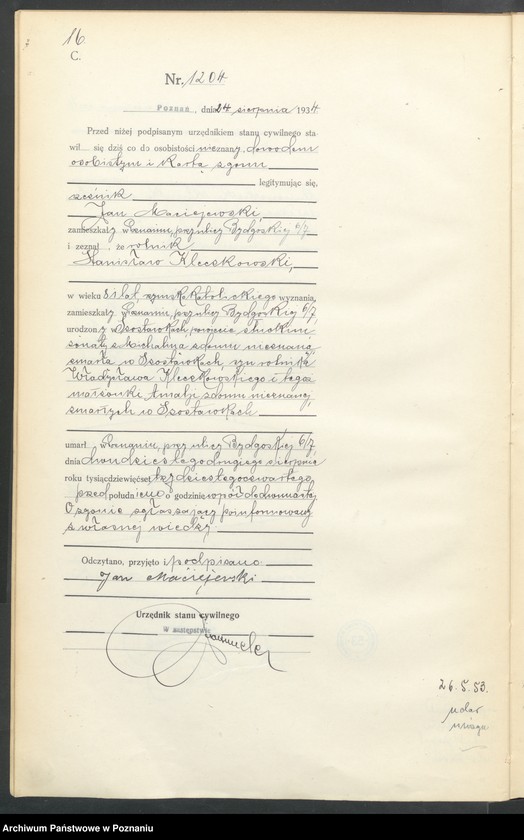 16.
C.
Nr. 1204
Poznań, dnia 24 sierpnia 1934
Przed niżej podpisanym urzędnikiem stanu cywilnego sta
wił się dziś co do osobistości nieznany, dowodem
osobistym i kartą zgonu
legitymując się,
Jan Maciejewski,
zamieszkały w Poznaniu, przy ulicy Bydgoskiej 6/7
i zeznał, że rolnik
Stanisław Kleczkowski,
w wieku 81 lat, rzymskokatolickiego wyznania,
zamieszkały w Poznaniu, przy ulicy Bydgoskiej 6/7
urodzony w Szostarkach, powiecie
żonaty z Michaliną z domu nieznaną,
zmarłą w Szostarkach, syn rolnika
Władysława Kleczkowskiego i tegoż
małżonki Amalji z domu nieznanej
zmarłych w Szostarkach
umarł w Poznaniu, przy ulicy Bydgoskiej 6/7
dnia dwudziestego drugiego sierpnia
roku tysiącdziewięćset trzydziestego czwartego
przed południem o godzinie wpół do dwunastej.
O zgonie zgłaszający poinformowany
z własnej wiedzy.
Odczytano, przyjęto i podpisano
Jan Maciejewski
Urzędnik stanu cywilnego
W zastępstwie
26.5.53.
udar
mózgu
Archiwum Państwowe w Poznaniu